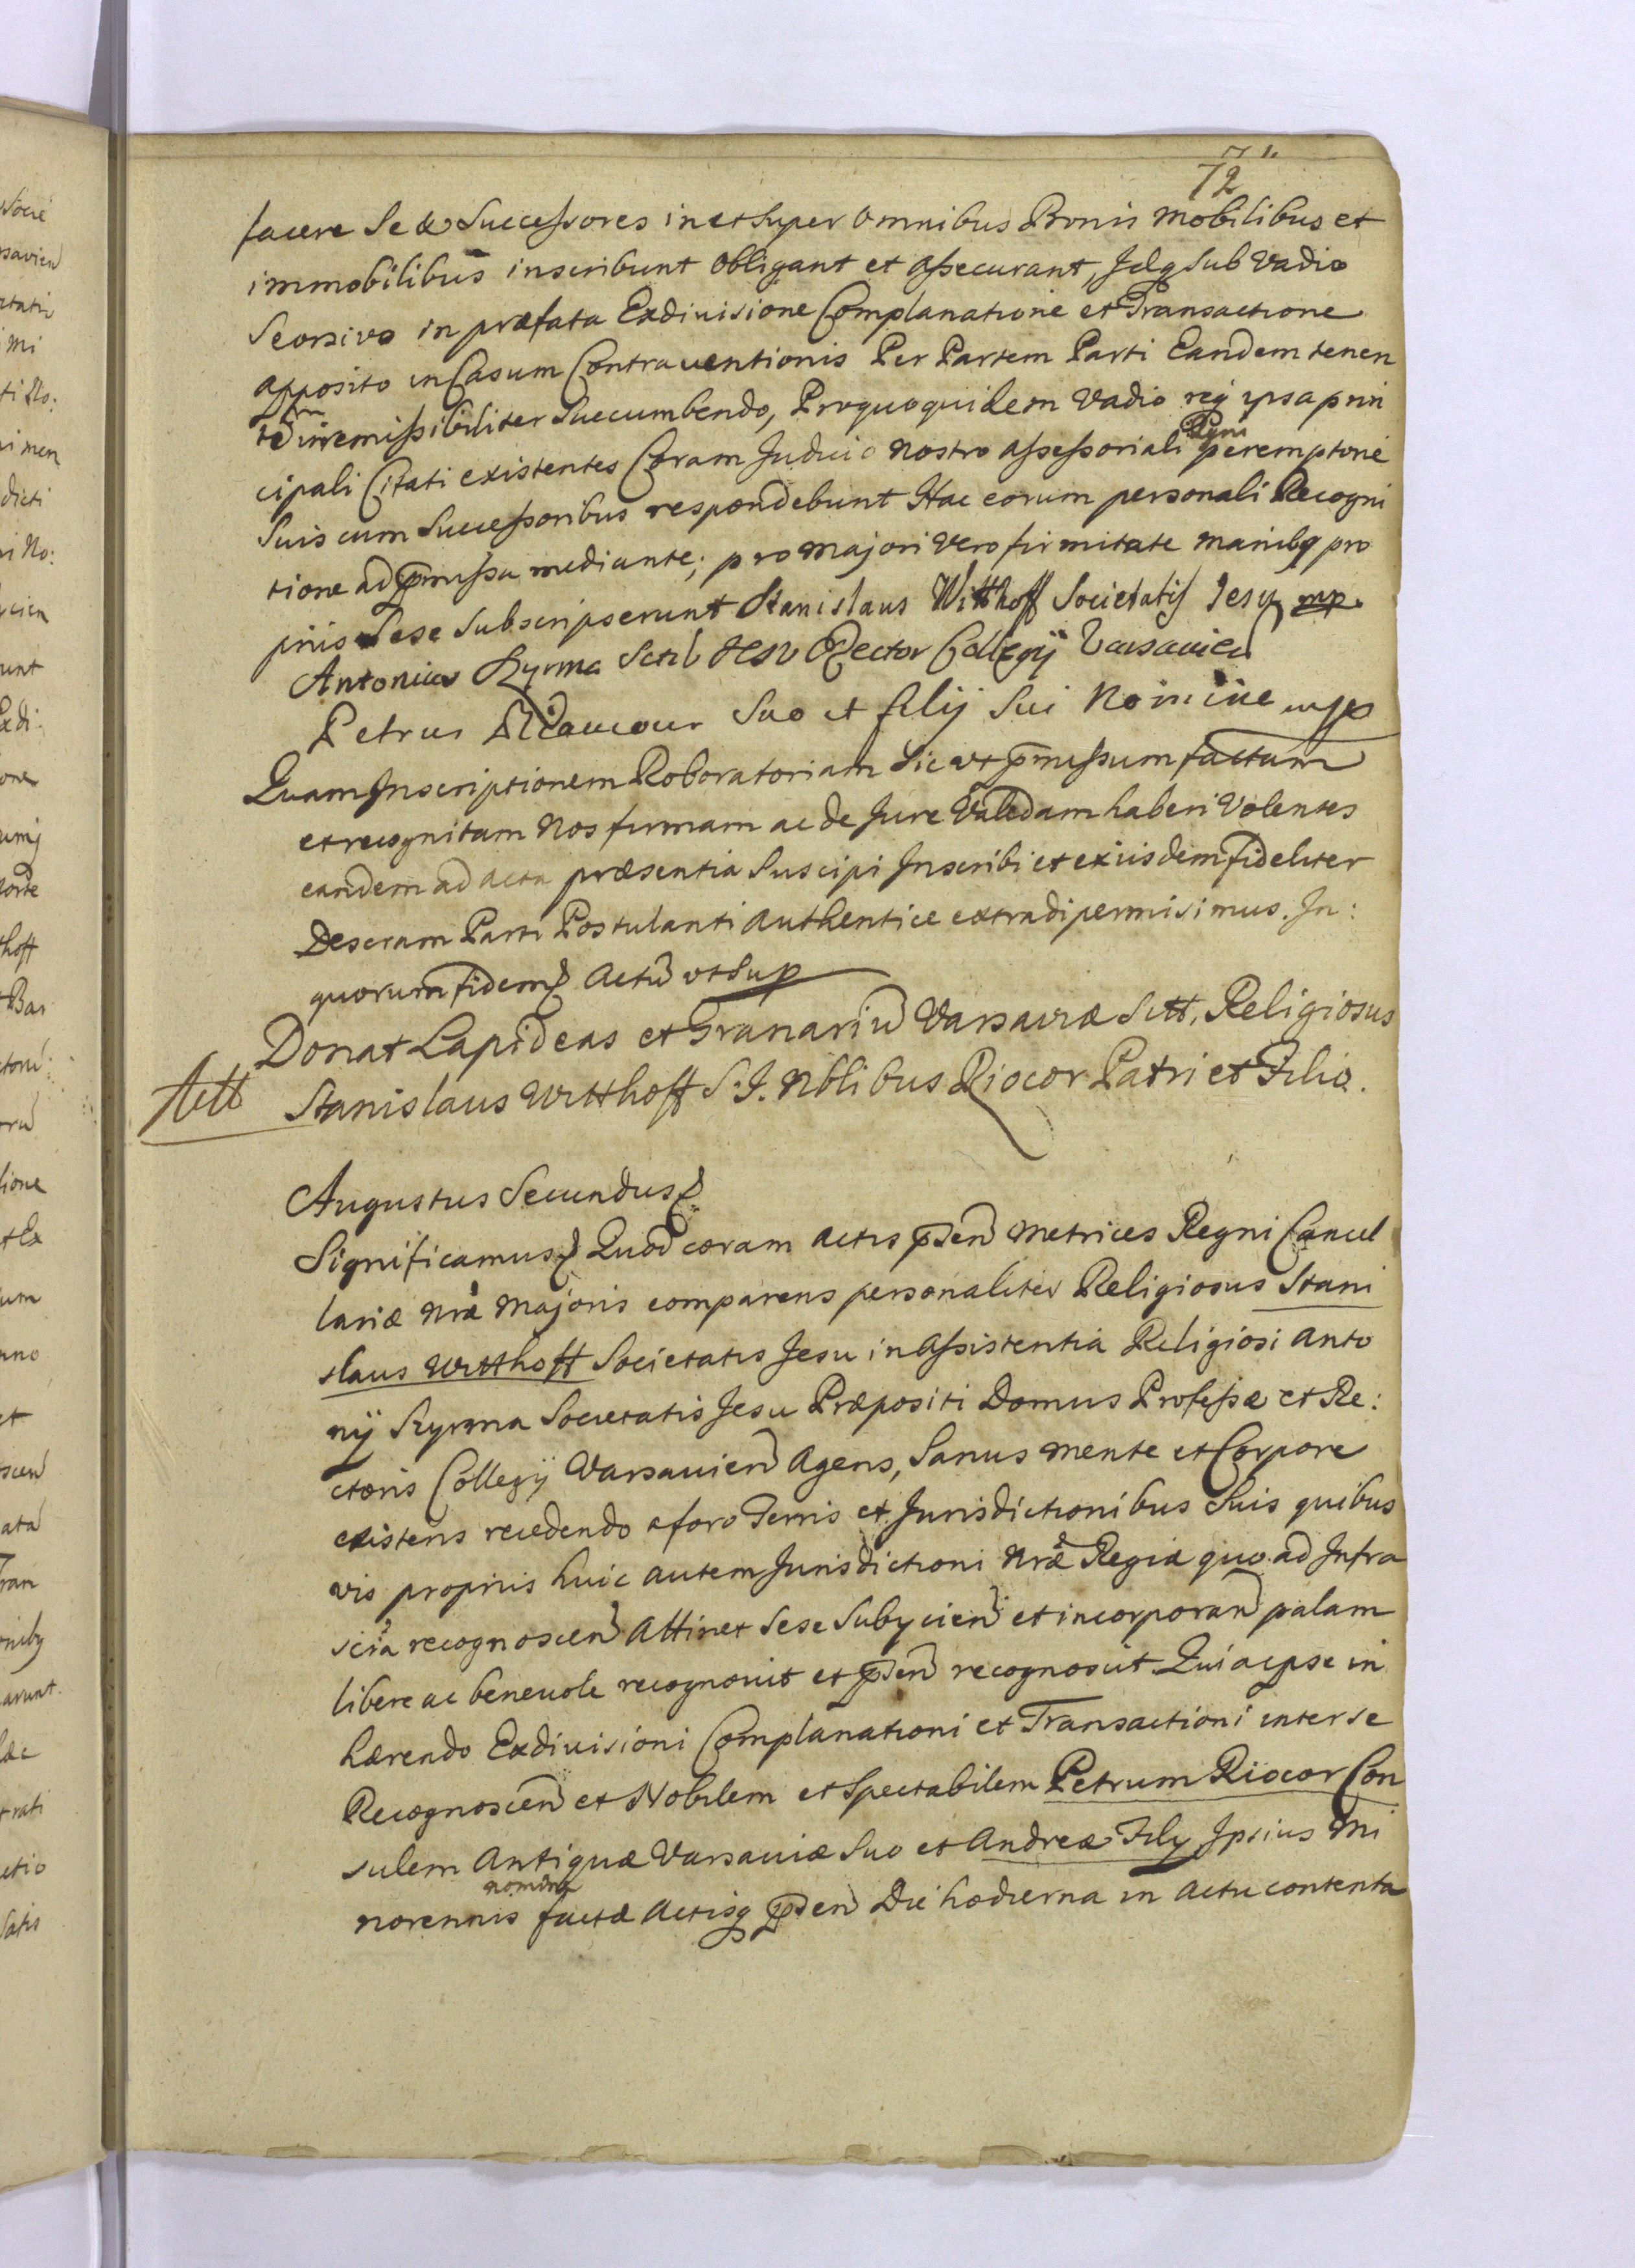 71.
72
facere Se & Successores in et super omnibus Bonis mobilibus et
immobilibus inscribunt obligant et assecurant, Idq sub vadio
Seorsivo in præfata Exdiuisione Complanatione et Transactione
apposito in Casum Contrauentionis Per Partem Parti Eandem tenen
irremissibiliter succumbendo, Pro quo quidem vadio reg ipsa prin
cipali Citati existentes Coram Judicio nostro assessoriali Regni peremptorie
Suis cum Successoribus respondebunt Hac eorum personali Recogni
tione ad pmissa mediante; pro majori vero firmitate manibq pro
priis Sese Subscripserunt Stanislaus Witthoff Societatis Jesu mp.
Antonius Szyrma Societ JESV Rector Collegÿ Varsauien
Petrus suo et filij sui Nomine mp
Quam Inscriptionem Roboratoriam sic ut pmissum factam
et recognitam Nos firmam ac de Jure Validam haberi Volentes
eandem ad acta præsentia Suscipi Inscribi et exiisdem fideliter
Descram Parti Postulanti authentice extradi permisimus. In:
quorum fidem Actu ut sup
Donat Lapideas et Granariu Varsaviæ Sitt, Religiosus
Stanislaus Witthoff S. J. Nblibus Riocor Patri et Filio.
Augustus Secundus
Significamus Quod coram actis pden Metrices Regni Cancel
lariæ nræ Majoris comparens personaliter Religiosus Stani
slaus Witthoff Societatis Jesu in assistentia Religiosi Anto
nÿ Szyrma Societatis Jesu Præpositi Domus Professæ et Re:
ctoris Collegÿ Varsauien Agens, Sanus mente et Corpore
existens recedendo a foro Terris et Jurisdictionibus Suis quibus
vis propriis huic autem Jurisdictioni nræ Regiæ quo ad Infra
scta recognoscen Attinet Sese Subycien et incorporan palam
libere ac beneuole recognouit et pden recognoscit. Quia ipse in
hærendo Exdiuisioni Complanationi et Transactioni inter se
Recognoscen et Nobilem et Spectabilem Petrum Riocor Con
sulem Antiquæ Varsauiæ Suo et Andreæ Fily Ipsius Mi
norennis nomine factæ Actisq pden Die hodierna in actu contenta